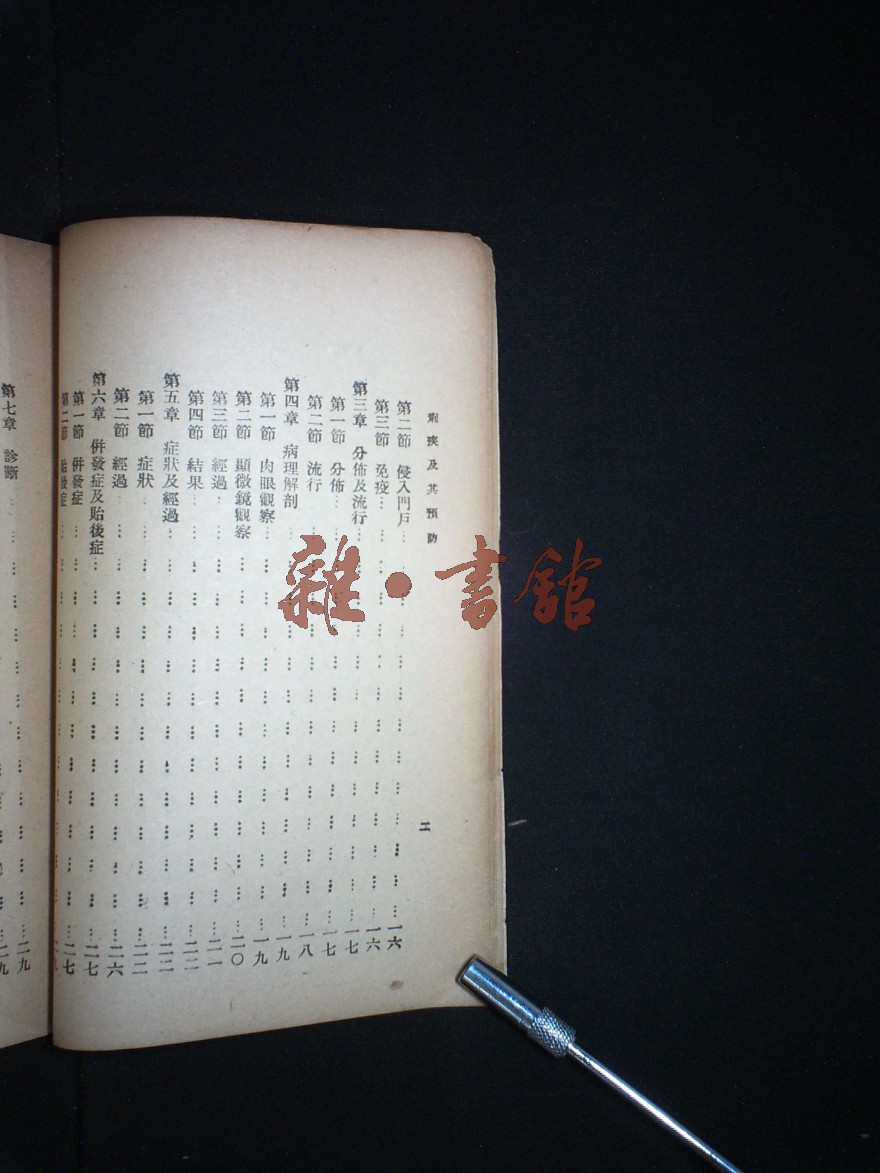 痢疾及其預防
二
第二節 侵入門戶……一六
第三節 免疫……一六
第三章 分佈及流行……一七
第一節 分佈……一七
第二節 流行……一八
第四章 病理解剖……一九
第一節 肉眼觀察……一九
第二節 顯微鏡觀察……二〇
第三節 經過……二一
第四節 結果……二二
第五章 症狀及經過……二二
第一節 症狀……二二
第二節 經過……二六
第六章 併發症及貽後症……二七
第一節 併發症……二七
第二節 貽後症……
第七章 診斷……二九
雜·書館